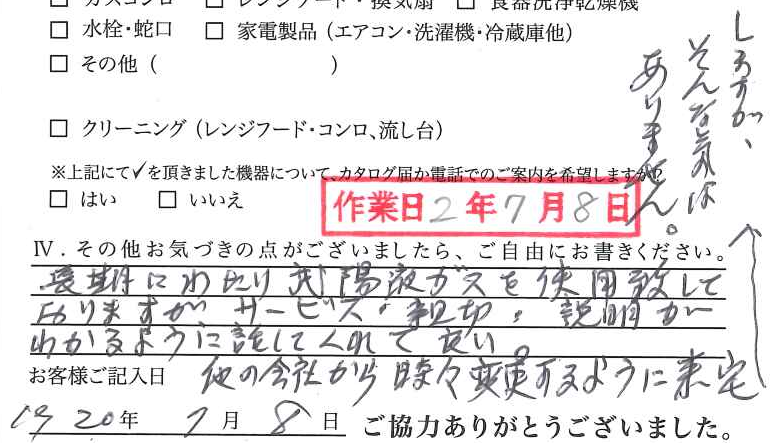 □ ガスコンロ □ レンジフード・換気扇 □ 食器洗浄乾燥機
□ 水栓・蛇口 □ 家電製品（エアコン・洗濯機・冷蔵庫他）
□ その他（ ）
□ クリーニング（レンジフード・コンロ、流し台）
※上記にて✓を頂きました機器について、カタログ届か電話でのご案内を希望しますか？
□ はい □ いいえ
作業日 2年7月8日
Ⅳ．その他お気づきの点がございましたら、ご自由にお書きください。
長期にわたり武陽液ガスを使用致して
おりますがサービス・親切・説明が
わかるように話してくれて良い。
お客様ご記入日
他の会社から時々変更するように来宅
しますが、
そんな気は
ありません。
1920年 7月 8日
ご協力ありがとうございました。